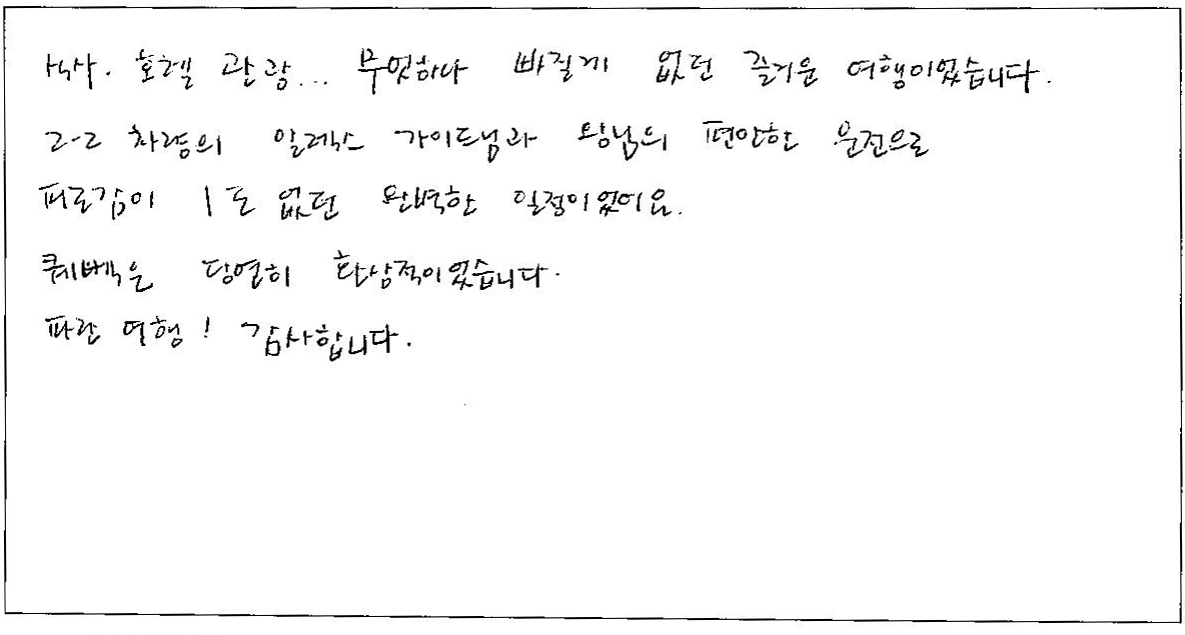 식사. 호텔 관광... 무엇하나 빠질게 없던 즐거운 여행이었습니다.
2-2 차량의 알렉스 가이드님과 왕님의 편안한 운전으로
피로감이 1도 없던 완벽한 일정이었어요.
퀘벡은 당연히 환상적이었습니다.
파란 여행! 감사합니다.